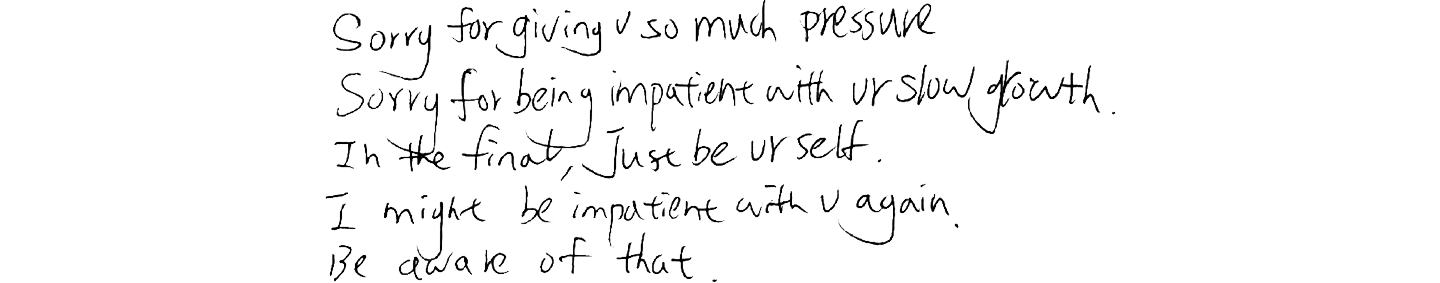 Sorry for giving u so much pressure
Sorry for being impatient with ur slow growth.
In the final, Just be urself.
I might be impatient with u again.
Be aware of that.